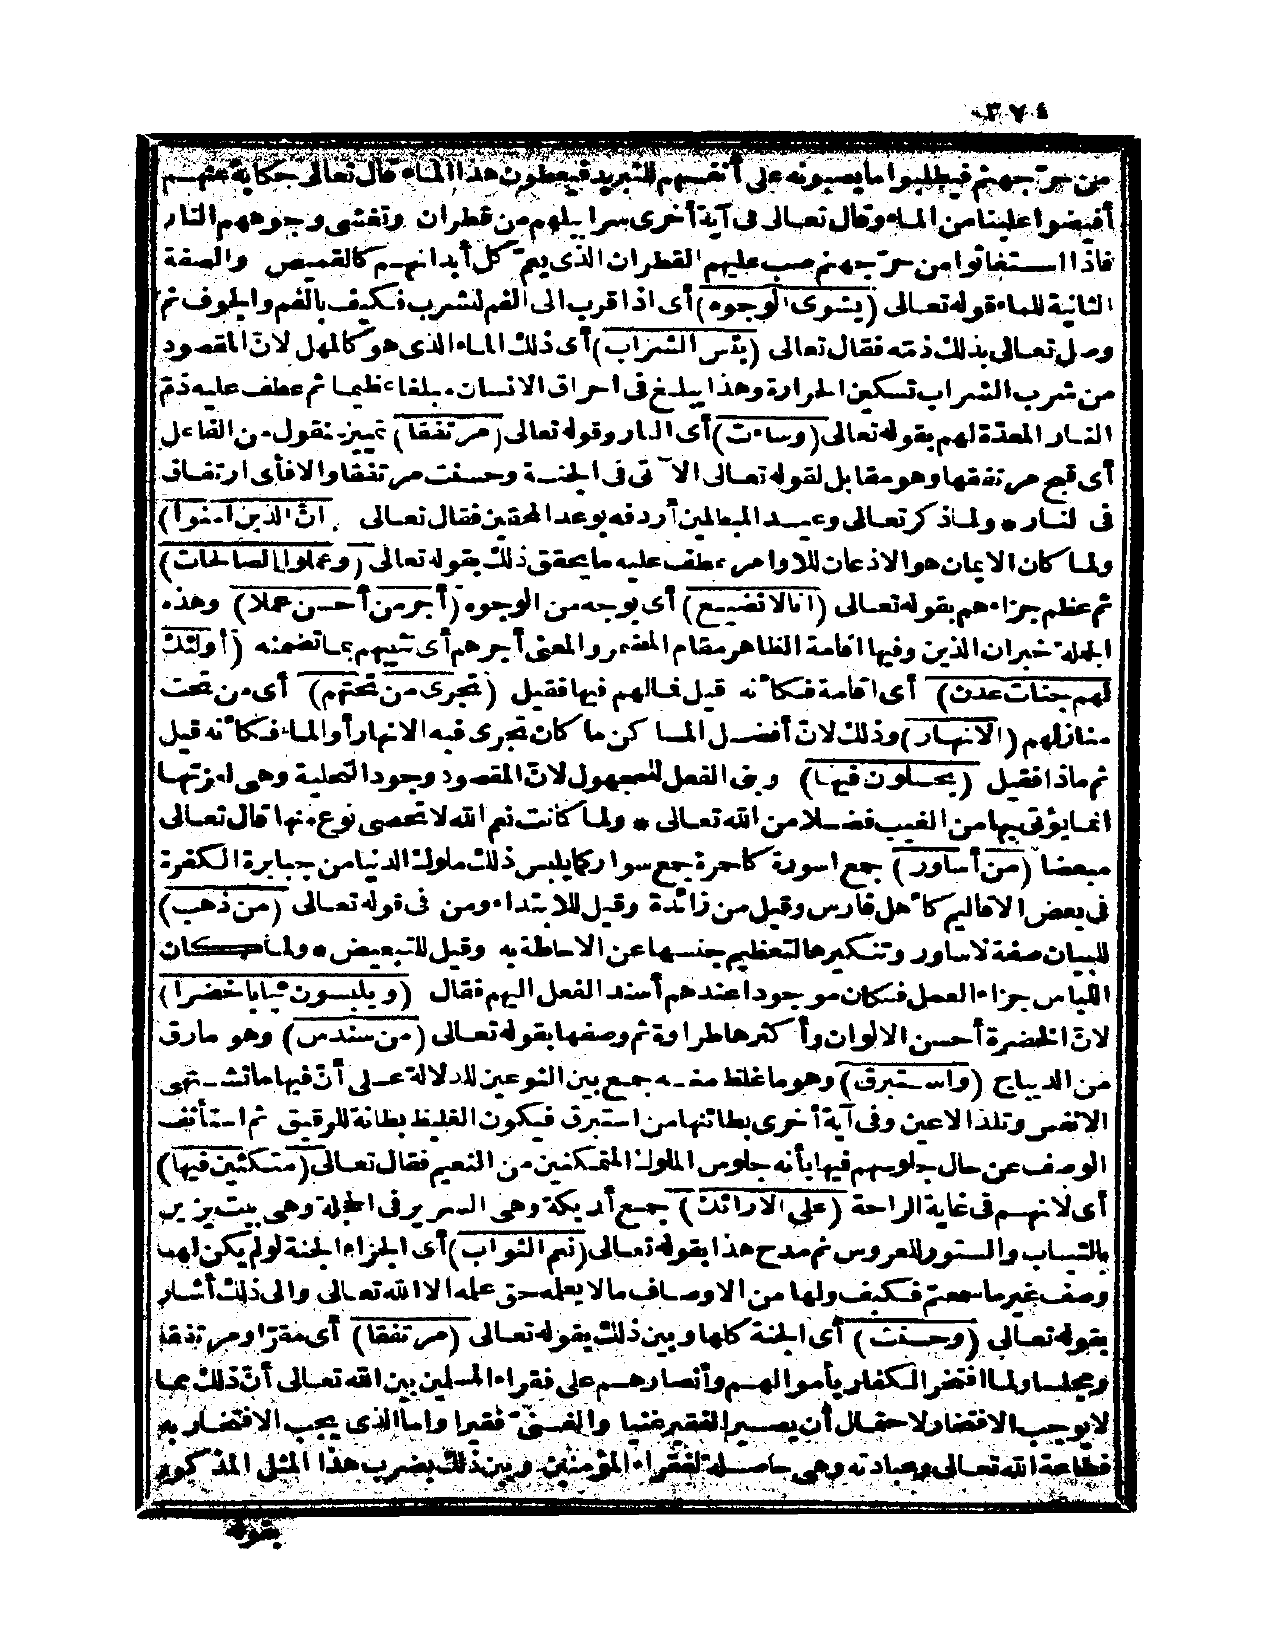 ٣٧٤
من حرّ جهنم فيطلبوا ما يصبونه على أنفسهم للتبريد فيعطون هذا الماء قال تعالى حكاية عنهم
أفيضوا علينا من الماء وقال تعالى فى آية أخرى سرابيلهم من قطران وتغشى وجوههم النار
فاذا استغاثوا من حرّ جهنم صب عليهم القطران الذى يعمّ كل أبدانهم كالقميص والصفة
الثانية للماء قوله تعالى (يشوى الوجوه) أى اذا قرب الى الفم لشرب فكيف بالفم والجوف ثم
وصل تعالى بذلك ذمّه فقال تعالى (بئس الشراب) أى ذلك الماء الذى هو كالمهل لانّ المقصود
من شرب الشراب تسكين الحرارة وهذا يبلغ فى احراق الانسان مبلغا عظيما ثم عطف عليه ذمّ
النار المعدّة لهم بقوله تعالى (وساءت) أى النار وقوله تعالى (مرتفقا) تمييز منقول من الفاعل
أى قبح مرتفقها وهو مقابل لقوله تعالى الآتى فى الجنة وحسنت مرتفقا والا فأى ارتفاق
فى النار * ولما ذكر تعالى وعيد المبطلين أردفه بوعد المحقين فقال تعالى (انّ الذين آمنوا)
ولما كان الايمان هو الاذعان للاوامر عطف عليه ما يحقق ذلك بقوله تعالى (وعملوا الصالحات)
ثم عظم جزاءهم بقوله تعالى (انا لا نضيع) أى بوجه من الوجوه (أجر من أحسن عملا) وهذه
الجملة خبر ان الذين وفيها اقامة الظاهر مقام المضمر والمعنى أجرهم أى نثيبهم بما تضمنه (أولئك
لهم جنات عدن) أى اقامة فكأنه قيل فمالهم فيها فقيل (تجرى من تحتهم) أى من تحت
منازلهم (الانهار) وذلك لانّ أفضل المساكن ما كان تجرى فيه الانهار أو الماء فكأنه قيل
ثم ماذا فقيل (يحلون فيها) وبنى الفعل للمجهول لانّ المقصود وجود التحلية وهى لعزتها
انما يؤتى بها من الغيب فضلا من الله تعالى * ولما كانت نعم الله لا تحصى نوع منها قال تعالى
مبعضا (من أساور) جمع اسورة كاحرة جمع سوار كما يلبس ذلك ملوك الدنيا من جبابرة الكفرة
فى بعض الاقاليم كأهل فارس وقيل من زائدة وقيل للابتداء ومن فى قوله تعالى (من ذهب)
للبيان صفة لاساور وتنكيرها لتعظيم جنسها عن الاحاطة به وقيل للتبعيض * ولما كان
اللباس جزاء العمل فكان موجودا عندهم أسند الفعل اليهم فقال (ويلبسون ثيابا خضرا)
لانّ الخضرة أحسن الالوان وأكثرها طراوة ثم وصفها بقوله تعالى (من سندس) وهو مارق
من الديباج (واستبرق) وهو ما غلظ منه جمع بين النوعين للدلالة على أنّ فيها ما تشتهى
الانفس وتلذ الاعين وفى آية أخرى بطائنها من استبرق فيكون الغليظ بطانة للرقيق ثم استأنف
الوصف عن حال جلوسهم فيها بأنه جلوس الملوك المتمكنين من النعيم فقال تعالى (متكئين فيها)
أى لانهم فى غاية الراحة (على الارائك) جمع أريكة وهى السرير فى الحجلة وهى بيت يزين
بالثياب والستور للعروس ثم مدح هذا بقوله تعالى (نعم الثواب) أى الجزاء الجنة لو لم يكن لها
وصف غير ما سمعتم فكيف ولها من الاوصاف مالا يعلمه حق علمه الا الله تعالى والى ذلك أشار
بقوله تعالى (وحسنت) أى الجنة كلها وبين ذلك بقوله تعالى (مرتفقا) أى مقرّا ومرتفقا
ومجلسا ولما افتخر الكفار بأموالهم وأنصارهم على فقراء المسلمين بين الله تعالى أنّ ذلك مما
لا يوجب الافتخار لاحتمال أن يصير الفقير غنيا والغنىّ فقيرا واما الذى يجب الافتخار به
فطاعة الله تعالى وعبادته وهى حاصلة لفقراء المؤمنين وبين ذلك بضرب هذا المثل المذكور
بقوله